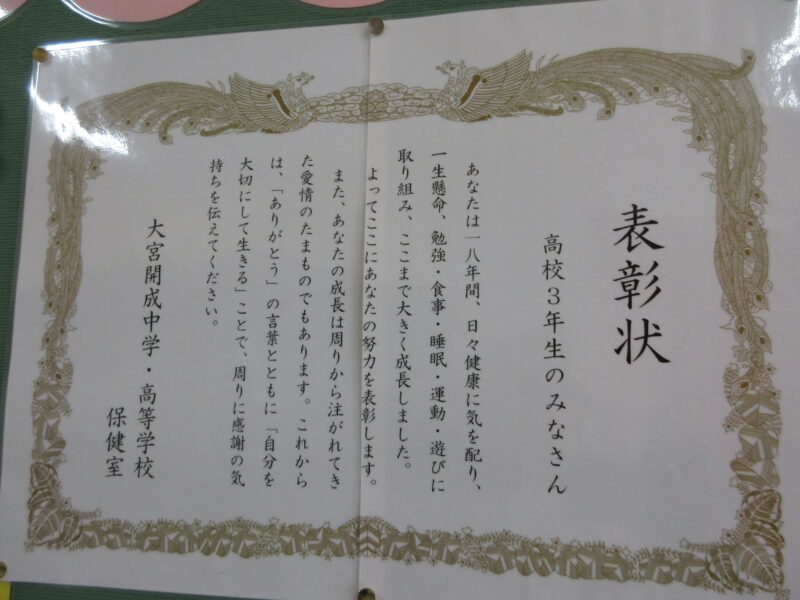 表彰状
高校３年生のみなさん
あなたは一八年間、日々健康に気を配り、
一生懸命、勉強・食事・睡眠・運動・遊びに
取り組み、ここまで大きく成長しました。
よってここにあなたの努力を表彰します。
また、あなたの成長は周りから注がれてき
た愛情のたまものでもあります。これから
は、「ありがとう」の言葉とともに「自分を
大切にして生きる」ことで、周りに感謝の気
持ちを伝えてください。
大宮開成中学・高等学校
保健室